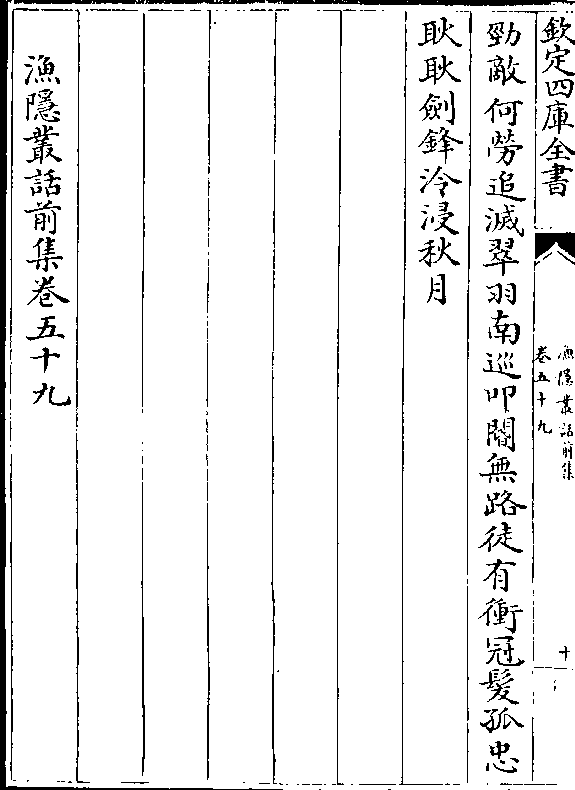 欽定四庫全書
漁隱叢話前集
卷五十九
十
勁敵何勞追滅翠羽南巡叩閽無路徒有衝冠髮孤忠
耿耿劍鋒冷浸秋月
漁隱叢話前集卷五十九